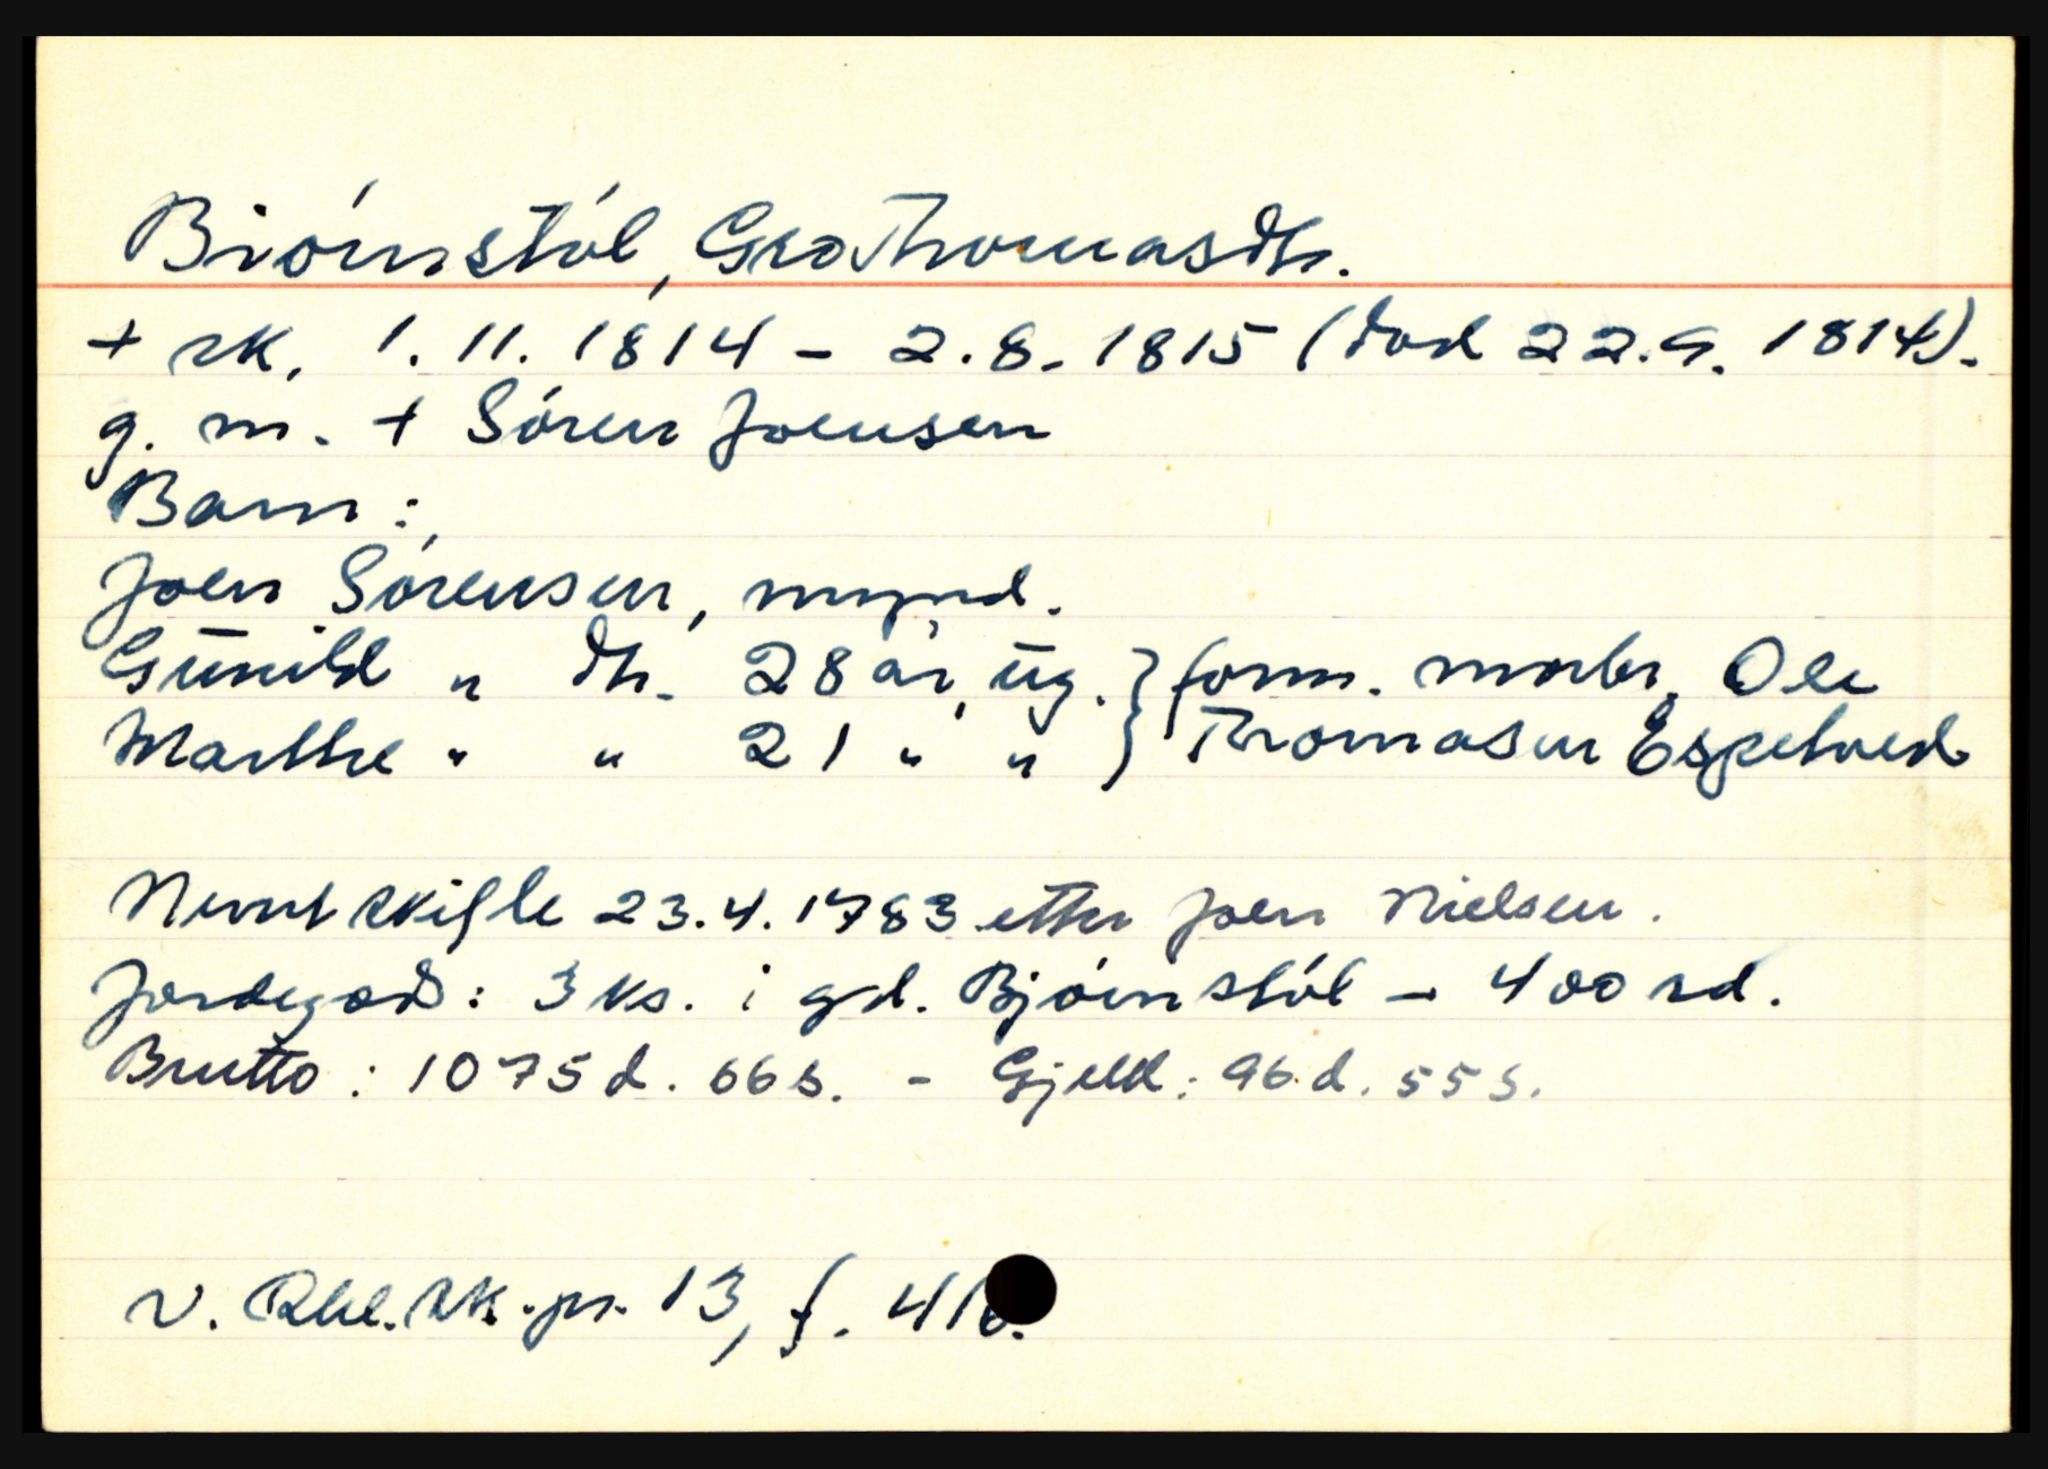 Biórnstól, Gro Thomasdtr.
+ sk. 1.11.1814 - 2.8.1815 (död 22.9.1814).
g. m. + Sören Joensen
Barn:
Joen Sörensen, mynd.
Gunild " dtr. 28 år, ug. } form. morbr. Ole
Marthe " " 21 " " } Thomasen Espetved
Nevnt skifte 23.4.1783 etter Joen Nielsen.
Jordegods: 3 ks. i gd. Bjórnstól - 400 rd.
Brutto: 1075 d. 66 s. - Gjeld: 96 d. 55 s.
N. Rbl. sk. pr. 13, f.